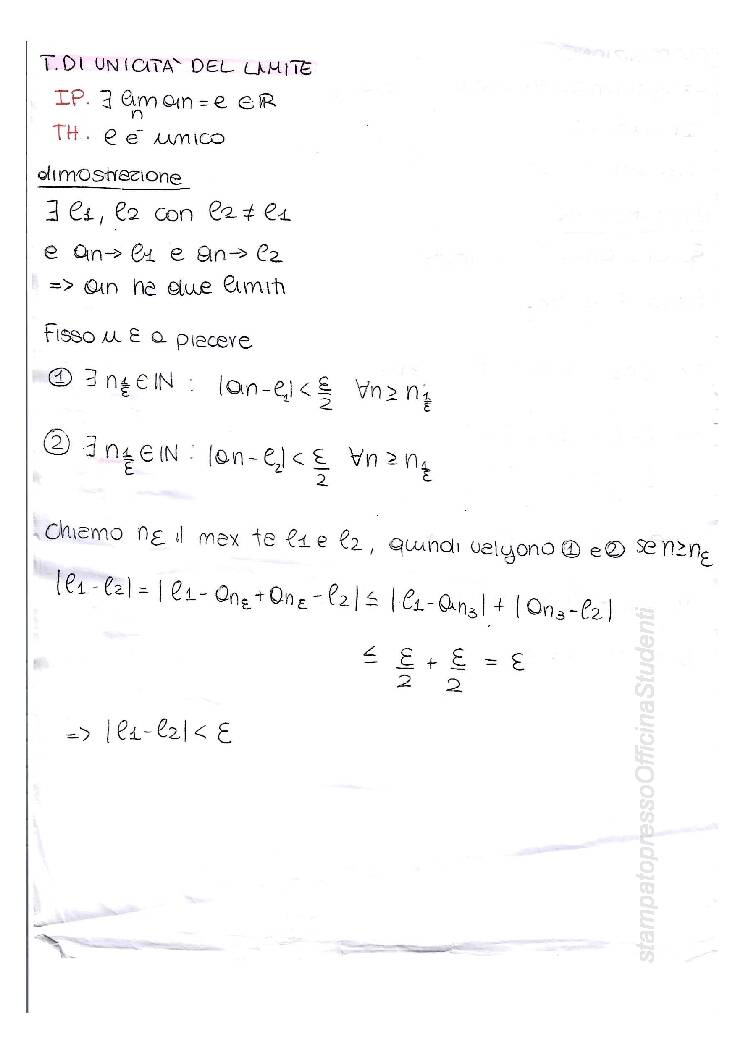 T. DI UNICITA' DEL LIMITE
IP. ∃ lim an = l ∈ ℝ
n
TH. l è unico
dimostrazione
∃ l1, l2 con l2 ≠ l1
e an → l1 e an → l2
=> an ha due limiti
Fisso u ε a piacere
① ∃ n 1/ε ∈ ℕ : |an - l1| < ε/2 ∀n ≥ n 1/ε
② ∃ n 1/ε ∈ ℕ : |an - l2| < ε/2 ∀n ≥ n 1/ε
Chiamo nε il max ta l1 e l2, quindi valgono ① e ② se n ≥ nε
|l1 - l2| = |l1 - anε + anε - l2| ≤ |l1 - an3| + |an3 - l2|
≤ ε/2 + ε/2 = ε
=> |l1 - l2| < ε
stampatopressoOfficinaStudenti